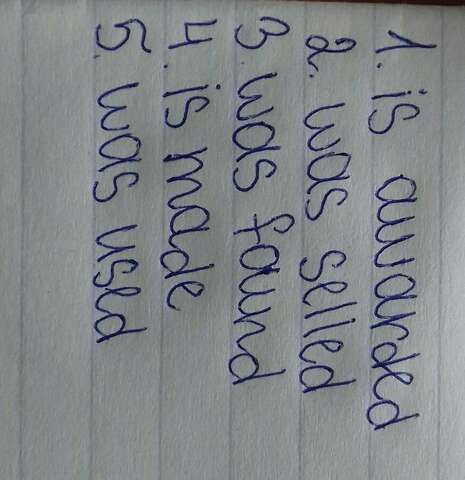 1. is awarded
2. was selled
3. was found
4. is made
5. was used